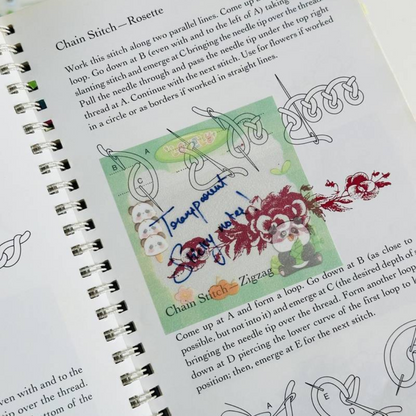 Chain Stitch – Rosette
Work this stitch along two parallel lines. Come up
loop. Go down at B (even with and to the left of A) taking
slanting stitch and emerge at C bringing the needle tip over the thread
Pull the needle through and pass the needle tip under the top right
thread at A. Continue with the next stitch. Use for flowers if worked
in a circle or as borders if worked in straight lines.
A
B
C
Sticky notes!
Chain Stitch – Zigzag
Come up at A and form a loop. Go down at B (as close to
possible, but not into it) and emerge at C (the desired depth of
bringing the needle tip over the thread. Form another loop
down at D piercing the lower curve of the first loop to
position; then, emerge at E for the next stitch.
even with and to the
tip over the thread.
bottom of the
A
C
D
E